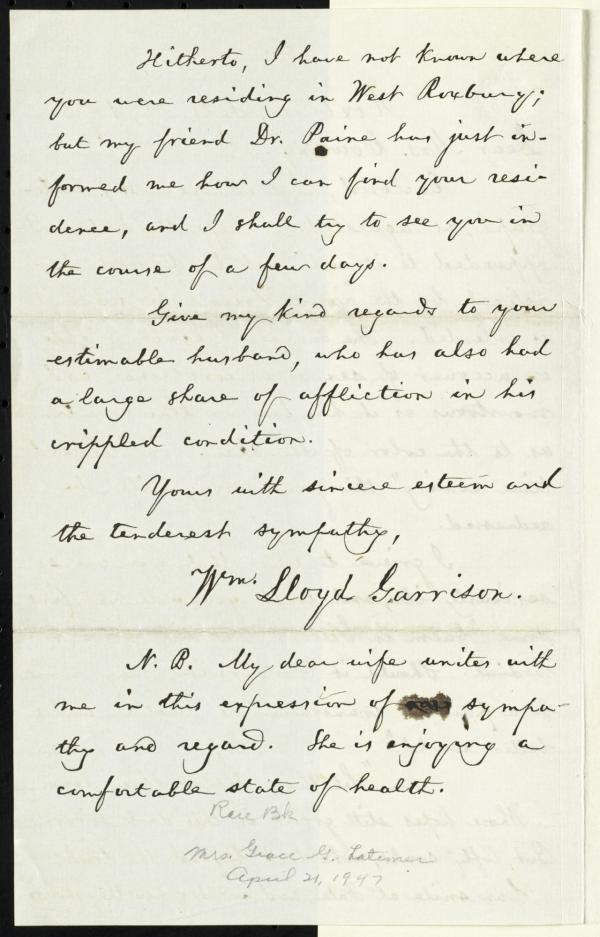 Hitherto, I have not known where
you were residing in West Roxbury;
but my friend Dr. Paine has just in-
formed me how I can find your resi-
dence, and I shall try to see you in
the course of a few days.
Give my kind regards to your
estimable husband, who has also had
a large share of affliction in his
crippled condition.
Yours with sincere esteem and
the tenderest sympathy,
Wm. Lloyd Garrison.
N. B. My dear wife unites with
me in this expression of sympa-
thy and regard. She is enjoying a
comfortable state of health.
Rare Bk
Mrs. Grace G. Latimer
April 21, 1947